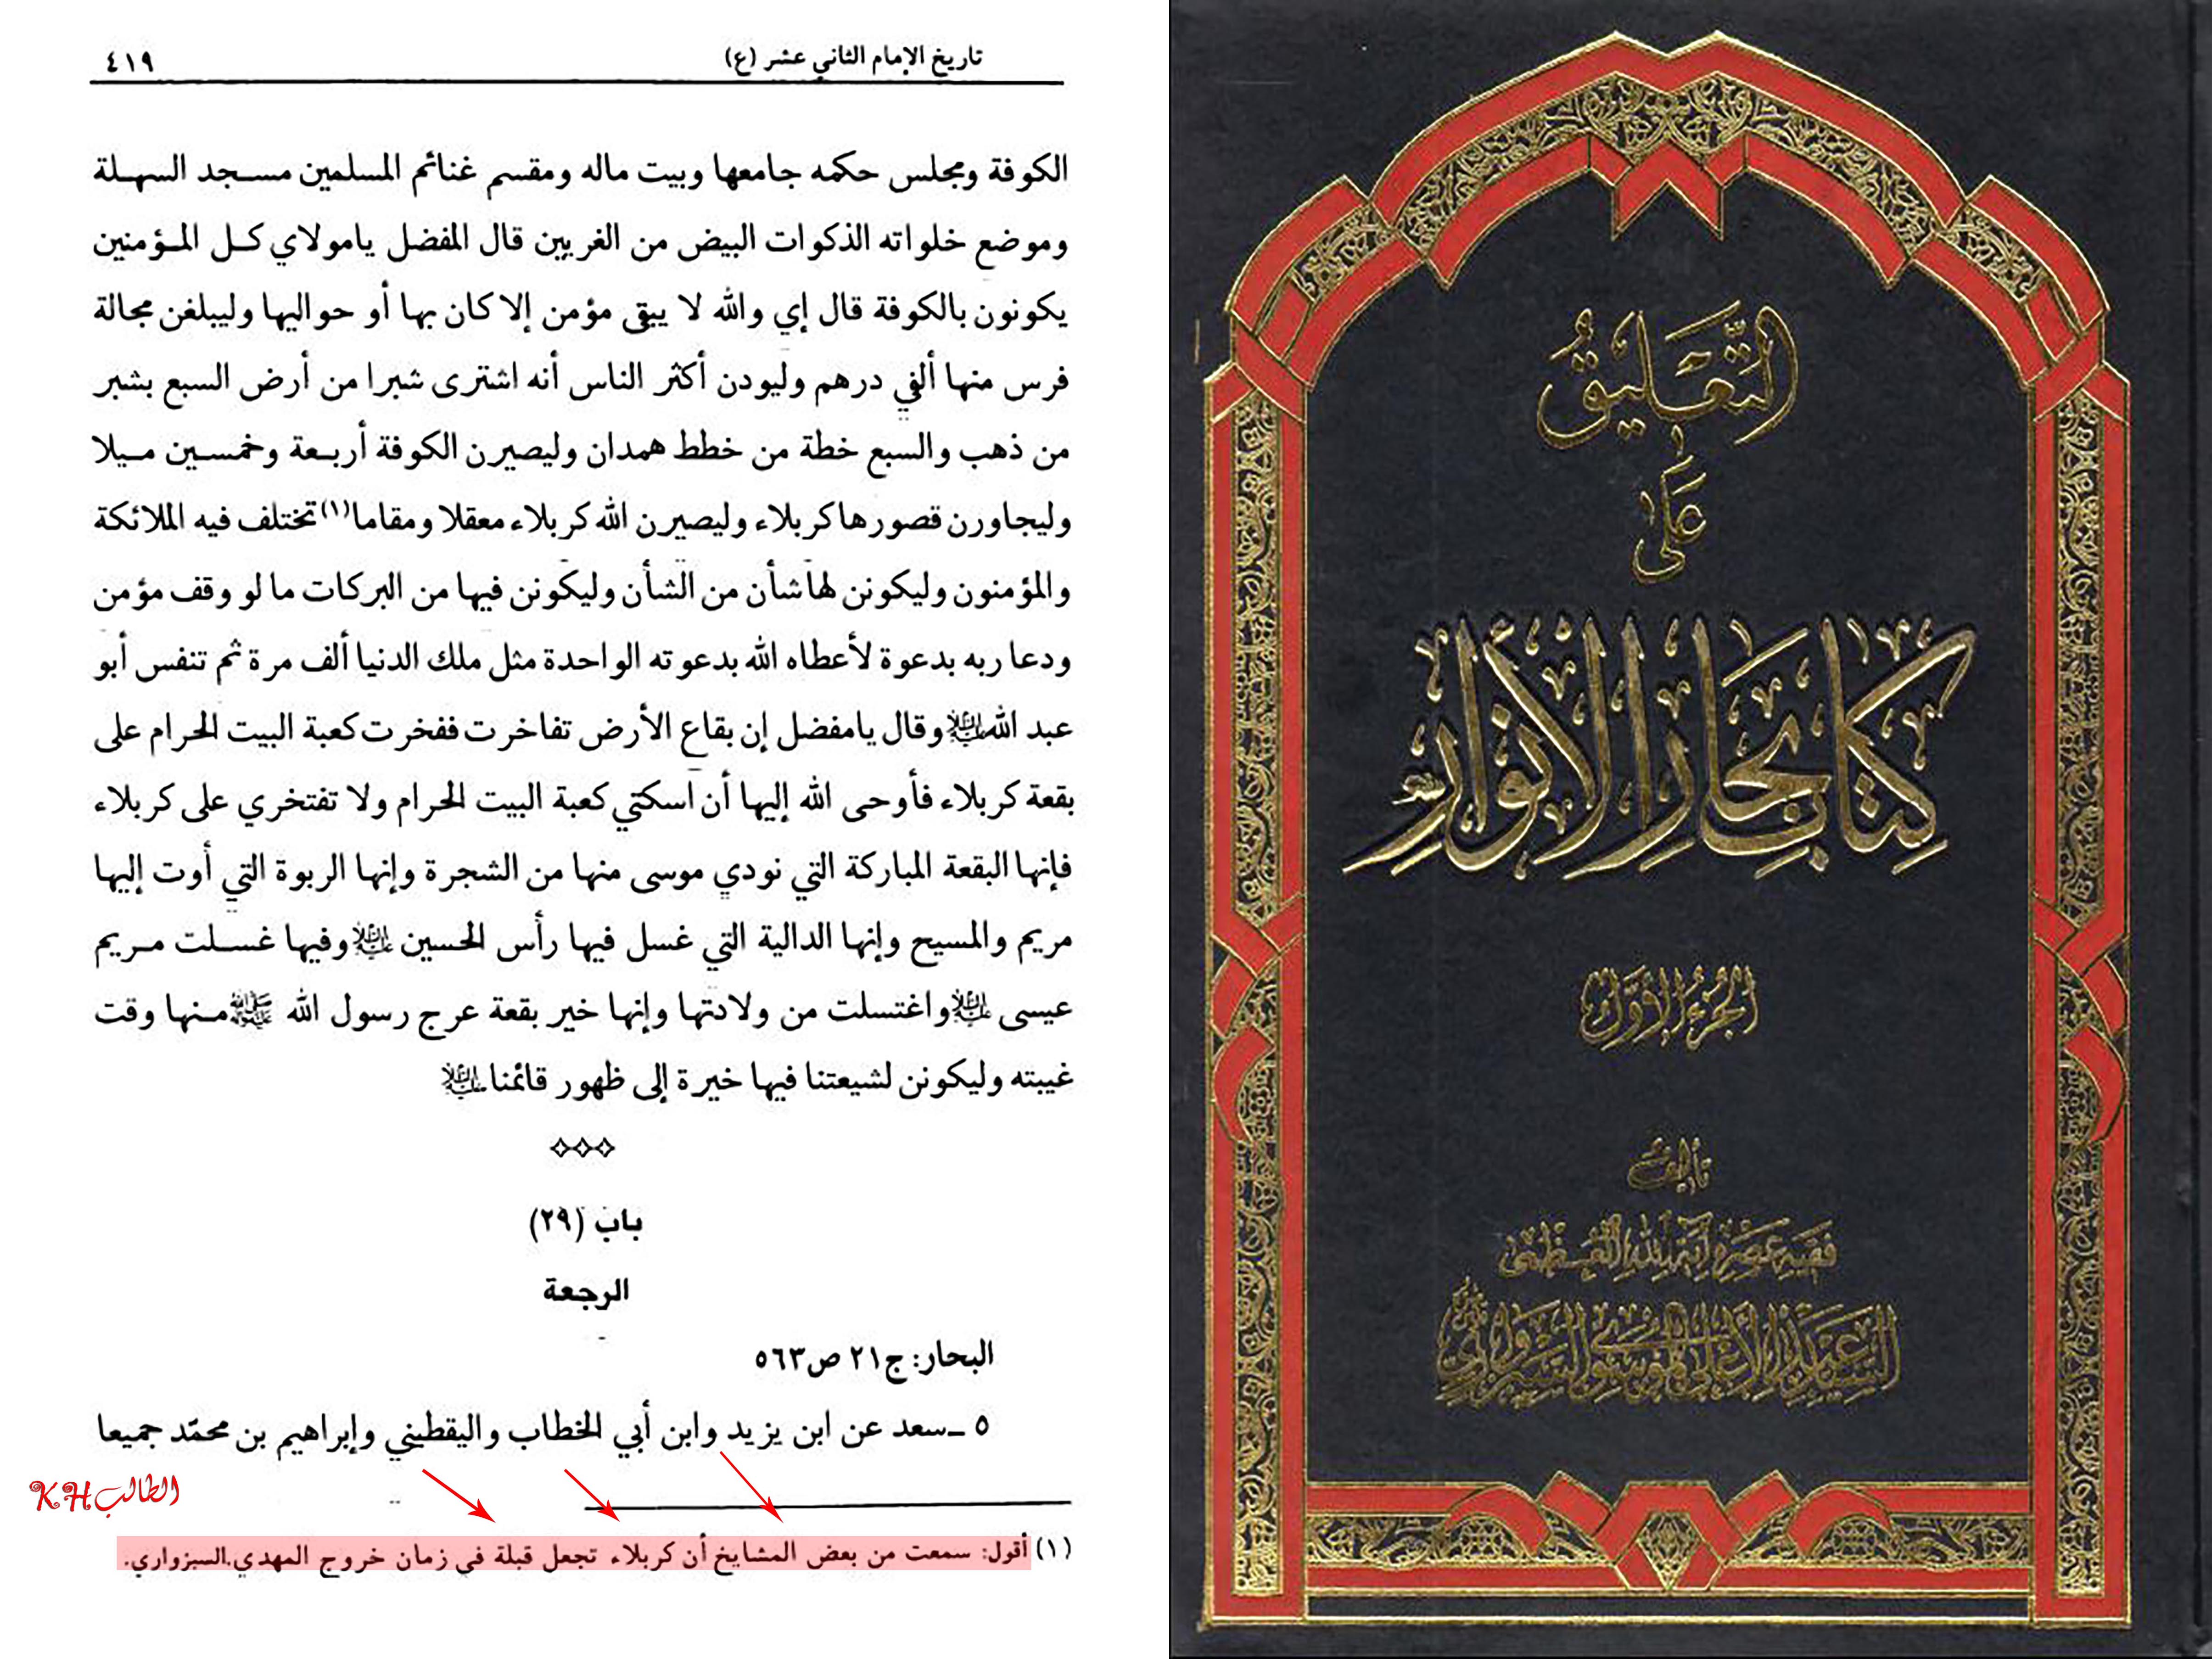 تاريخ الإمام الثاني عشر (ع)
٤١٩
الكوفة ومجلس حكمه جامعها وبيت ماله ومقسم غنائم المسلمين مسـجد السهـلة
وموضع خلواته الذكوات البيض من الغريين قال المفضل يامولاي كـل المـؤمنين
يكونون بالكوفة قال إي والله لا يبقى مؤمن إلا كان بها أو حواليها وليبلغن مجالة
فرس منها ألفي درهم وليودن أكثر الناس أنه اشترى شبرا من أرض السبع بشبر
من ذهب والسبع خطة من خطط همدان وليصيرن الكوفة أربـعة وخمسـين مـيلا
وليجاورن قصورها كربلاء وليصيرن الله كربلاء معقلا ومقاما(١) تختلف فيه الملائكة
والمؤمنون وليكونن لها شأن من الشأن وليكونن فيها من البركات ما لو وقف مؤمن
ودعا ربه بدعوة لأعطاه الله بدعوته الواحدة مثل ملك الدنيا ألف مرة ثم تنفس أبو
عبد الله عليه السلام وقال يامفضل إن بقاع الأرض تفاخرت ففخرت كعبة البيت الحرام على
بقعة كربلاء فأوحى الله إليها أن اسكتي كعبة البيت الحرام ولا تفتخري على كربلاء
فإنها البقعة المباركة التي نودي موسى منها من الشجرة وإنها الربوة التي أوت إليها
مريم والمسيح وإنها الدالية التي غسل فيها رأس الحسين عليه السلام وفيها غسـلت مـريم
عيسى عليه السلام واغتسلت من ولادتها وإنها خير بقعة عرج رسول الله ﷺ مـنها وقت
غيبته وليكونن لشيعتنا فيها خيرة إلى ظهور قائمنا عليه السلام
باب (٢٩)
الرجعة
البحار: ج٢١ ص٥٦٣
٥ ـ سعد عن ابن يزيد وابن أبي الخطاب واليقطيني وإبراهيم بن محمّد جميعا
الطالب KH
(١) أقول: سمعت من بعض المشايخ أن كربلاء تجعل قبلة في زمان خروج المهدي. السبزواري.
التَّعليقُ
عَلى
كتاب بحار الأنوار
الجزء الأوّل
تأليف
فقيه عصره آية الله العظمى
السيد عبد الأعلى الموسوي السبزواري